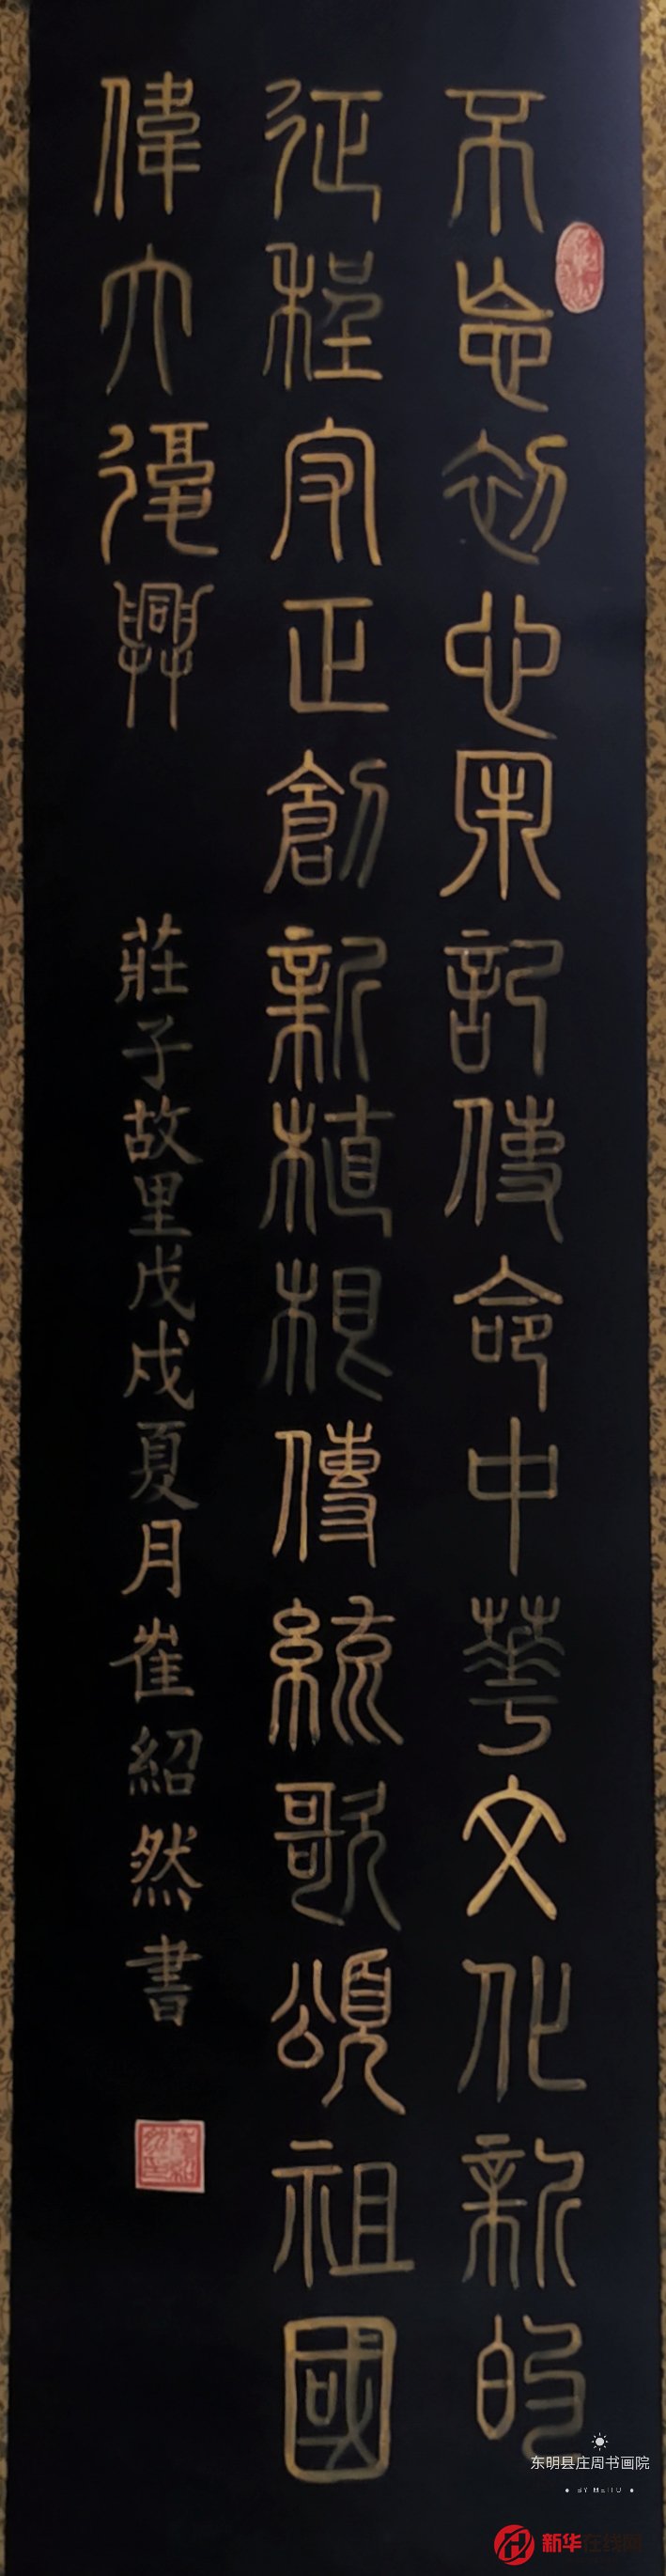 不忘初心牢記使命中華文化新的
征程守正創新植根傳統歌頌祖國
偉大復興
莊子故里戊戌夏月崔紹然書
东明县庄周书画院
新华在线